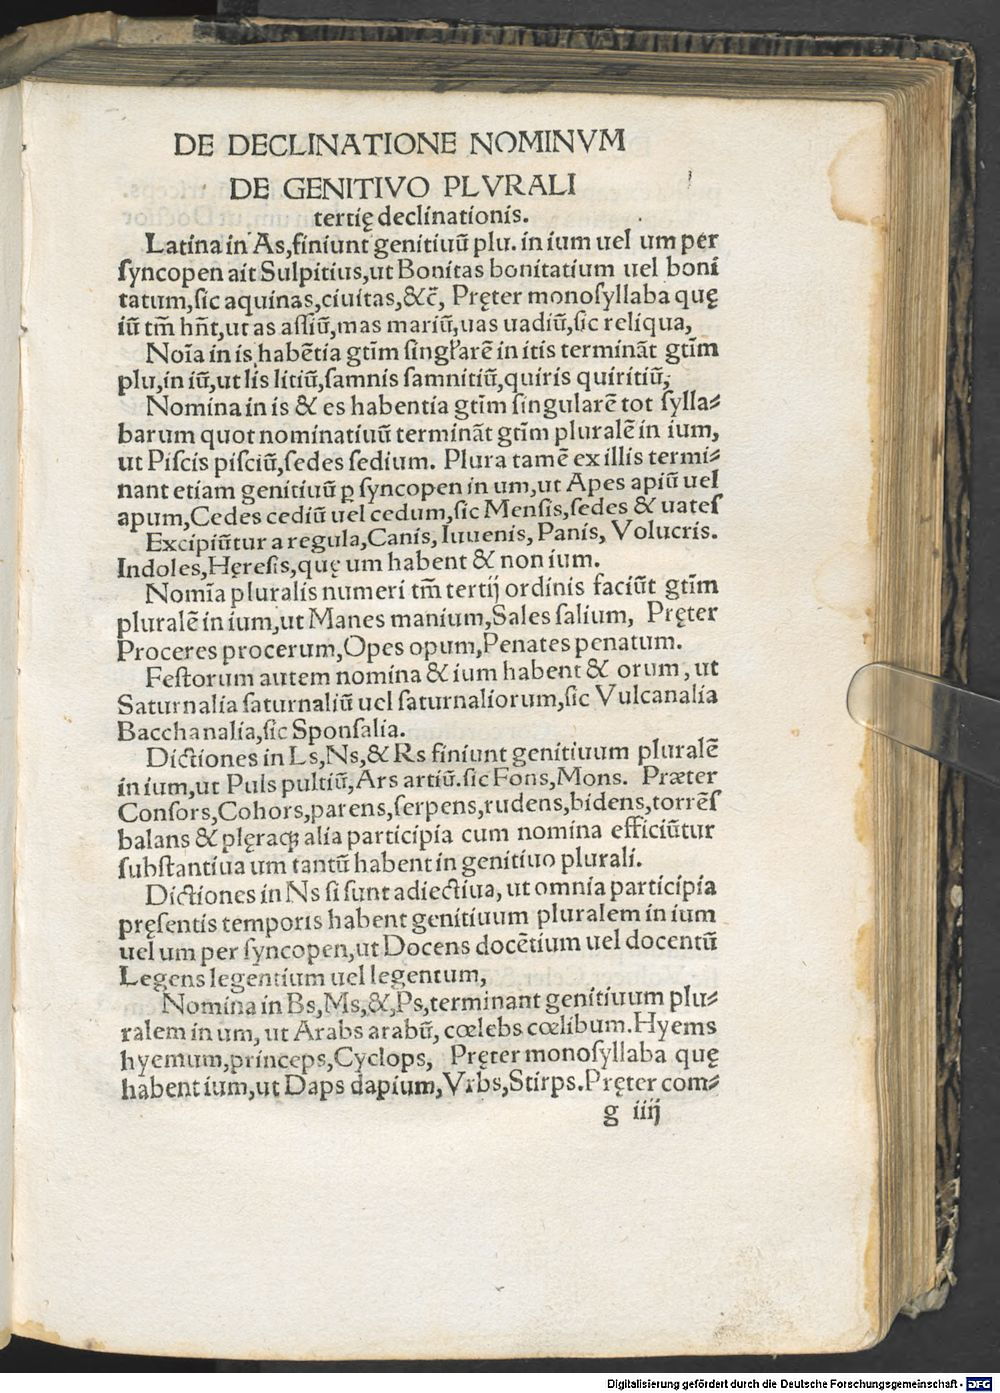 DE DECLINATIONE NOMINVM
DE GENITIVO PLVRALI
tertię declinationis.
Latina in As,finiunt genitiuū plu. in ium uel um per
ſyncopen ait Sulpitius,ut Bonitas bonitatium uel boni
tatum,ſic aquinas,ciuitas,&c̄, Pręter monoſyllaba quę
iū tm̄ hn̄t,ut as aſſiū,mas mariū,uas uadiū,ſic reliqua,
Noīa in is habētia gtīm ſingl̓arē in itis terminãt gtīm
plu,in iū,ut lis litiū,ſamnis ſamnitiū,quiris quiritiū,
Nomina in is & es habentia gtīm ſingularē tot ſylla⸗
barum quot nominatiuū terminãt gtīm pluralē in ium,
ut Piſcis piſciū,ſedes ſedium. Plura tamē ex illis termi⸗
nant etiam genitiuū ꝑ ſyncopen in um,ut Apes apiū uel
apum,Cedes cediū uel cedum,ſic Menſis,ſedes & uateſ
Excipiūtur a regula,Canis, Iuuenis, Panis, Volucris.
Indoles,Hęreſis,quę um habent & non ium.
Nomīa pluralis numeri tm̄ tertij ordinis faciūt gtīm
pluralē in ium,ut Manes manium,Sales ſalium, Pręter
Proceres procerum,Opes opum,Penates penatum.
Feſtorum autem nomina & ium habent & orum, ut
Saturnalia ſaturnaliū uel ſaturnaliorum,ſic Vulcanalia
Bacchanalia,ſic Sponſalia.
Dictiones in Ls,Ns,& Rs finiunt genitiuum pluralē
in ium,ut Puls pultiū,Ars artiū.ſic Fons,Mons. Præter
Conſors,Cohors,parens,ſerpens,rudens,bidens,torrēſ
balans & plęraqꝫ alia participia cum nomina efficiūtur
ſubſtantiua um tantū habent in genitiuo plurali.
Dictiones in Ns ſi ſunt adiectiua, ut omnia participia
pręſentis temporis habent genitiuum pluralem in ium
uel um per ſyncopen,ut Docens docētium uel docentū
Legens legentium uel legentum,
Nomina in Bs,Ms,&,Ps,terminant genitiuum plu⸗
ralem in um, ut Arabs arabū, cœlebs cœlibum.Hyems
hyemum,princeps,Cyclops, Pręter monoſyllaba quę
habent ium,ut Daps dapium,Vrbs,Stirps.Pręter com⸗
g iiij
Digitalisierung gefördert durch die Deutsche Forschungsgemeinschaft - DFG